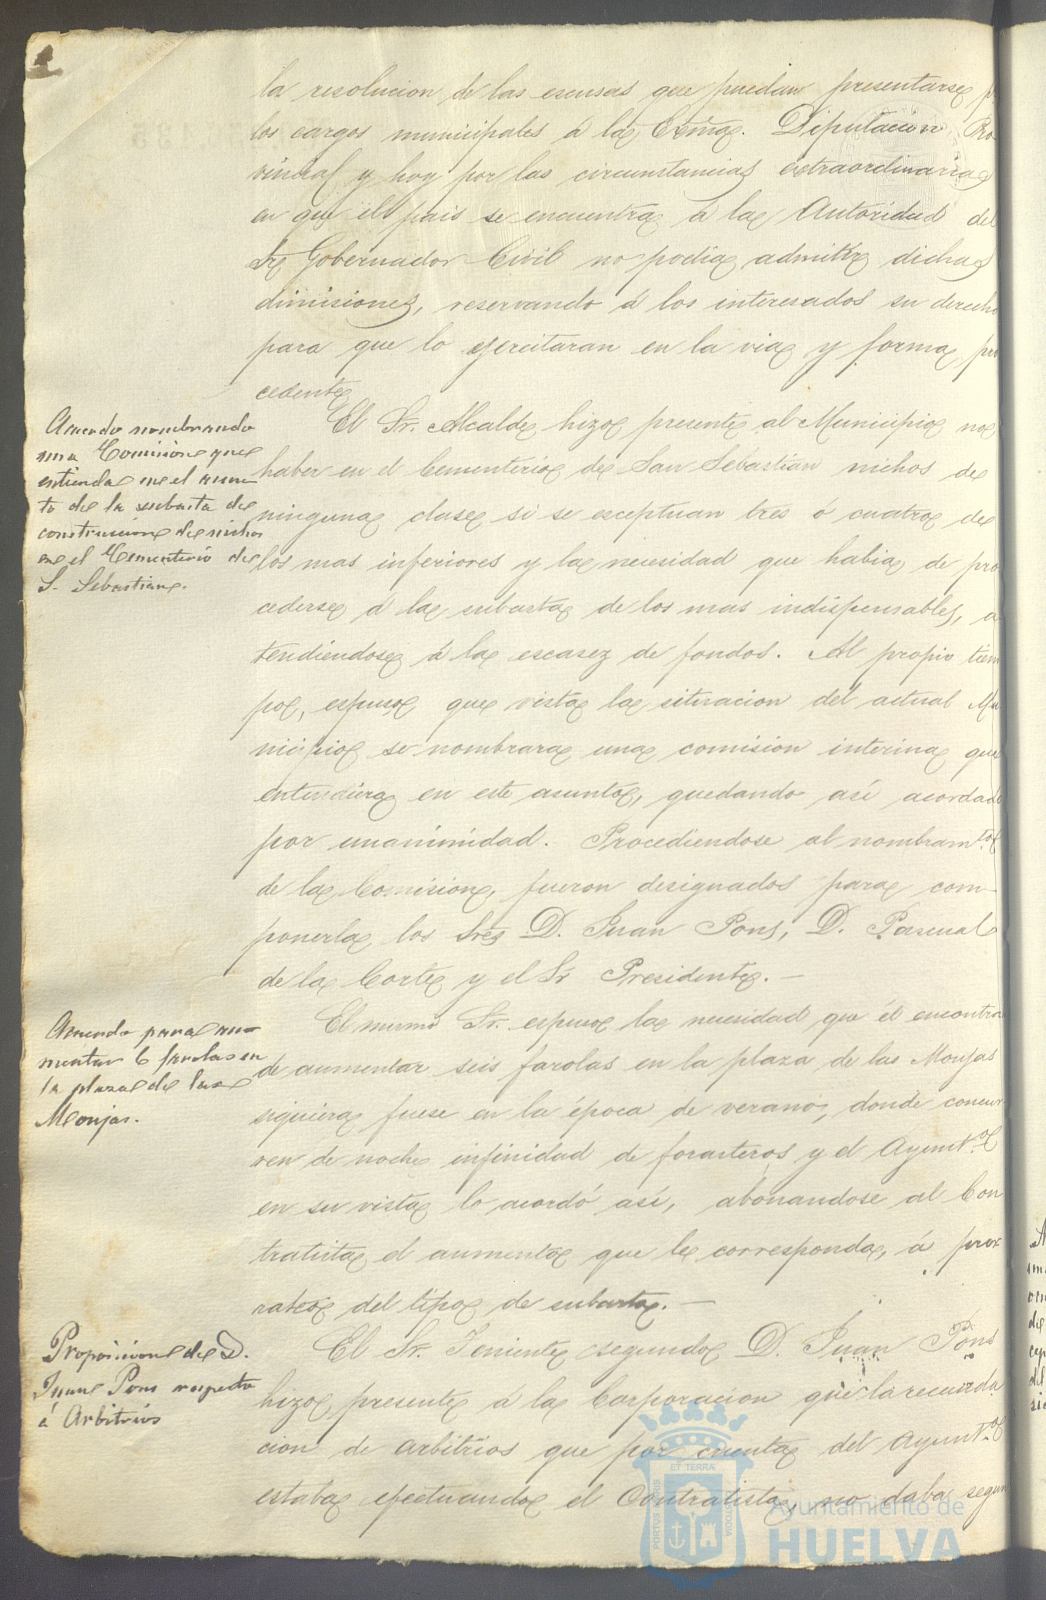 la resolucion de las escusas que puedan presentarse p
los cargos municipales á la Exma. Diputacion Pro
vincial y hoy por las circunstancias extraordinarias
en que el pais se encuentra á la Autoridad del
Sr. Gobernador Civil no podia admitir dichas
dimisiones, reservando á los interesados su derecho
para que lo ejercitaran en la via y forma pro
cedente
Acuerdo nombrando
una Comision que
entienda en el asun
to de la subasta de
construccion de nichos
en el Cementerio de
S. Sebastian.
El Sr. Alcalde hizo presente al Municipio no
haber en el Cementerio de San Sebastian nichos de
ninguna clase si se esceptuan tres ó cuatro de
los mas inferiores y la necesidad que habia de pro
cederse á la subasta de los mas indispensables, a
tendiendose á la escasez de fondos. Al propio tiem
po, espuso que vista la situacion del actual Mu
nicipio se nombrara una comision interina que
entendiera en este asunto, quedando asi acordado
por unanimidad. Procediendose al nombramto
de la Comision, fueron designados para com-
ponerla los Sres D. Juan Pons, D. Pascual
de la Corte y el Sr Presidente. —
Acuerdo para au
mentar 6 farolas en
la plaza de las
Monjas.
El mismo Sr. espuso la necesidad que él encontra
de aumentar seis farolas en la plaza de las Monjas
siquiera fuese en la época de verano, donde concur
ren de noche infinidad de forasteros y el Ayuntº
en su vista lo acordó asi, abonandose al Con
tratista el aumento que le corresponda, á pror
rateo del tipo de subasta. —
Proposicion de D.
Juan Pons respecto
á Arbitrios
El Sr. Teniente segundo D. Juan Pons
hizo presente á la Corporacion que la recauda
cion de arbitrios que por cuenta del Ayuntº
estaba efectuando el Contratista, no daba segun
ET TERRAE
PORTUS MARIS
CUSTODIA
Ayuntamiento de
HUELVA